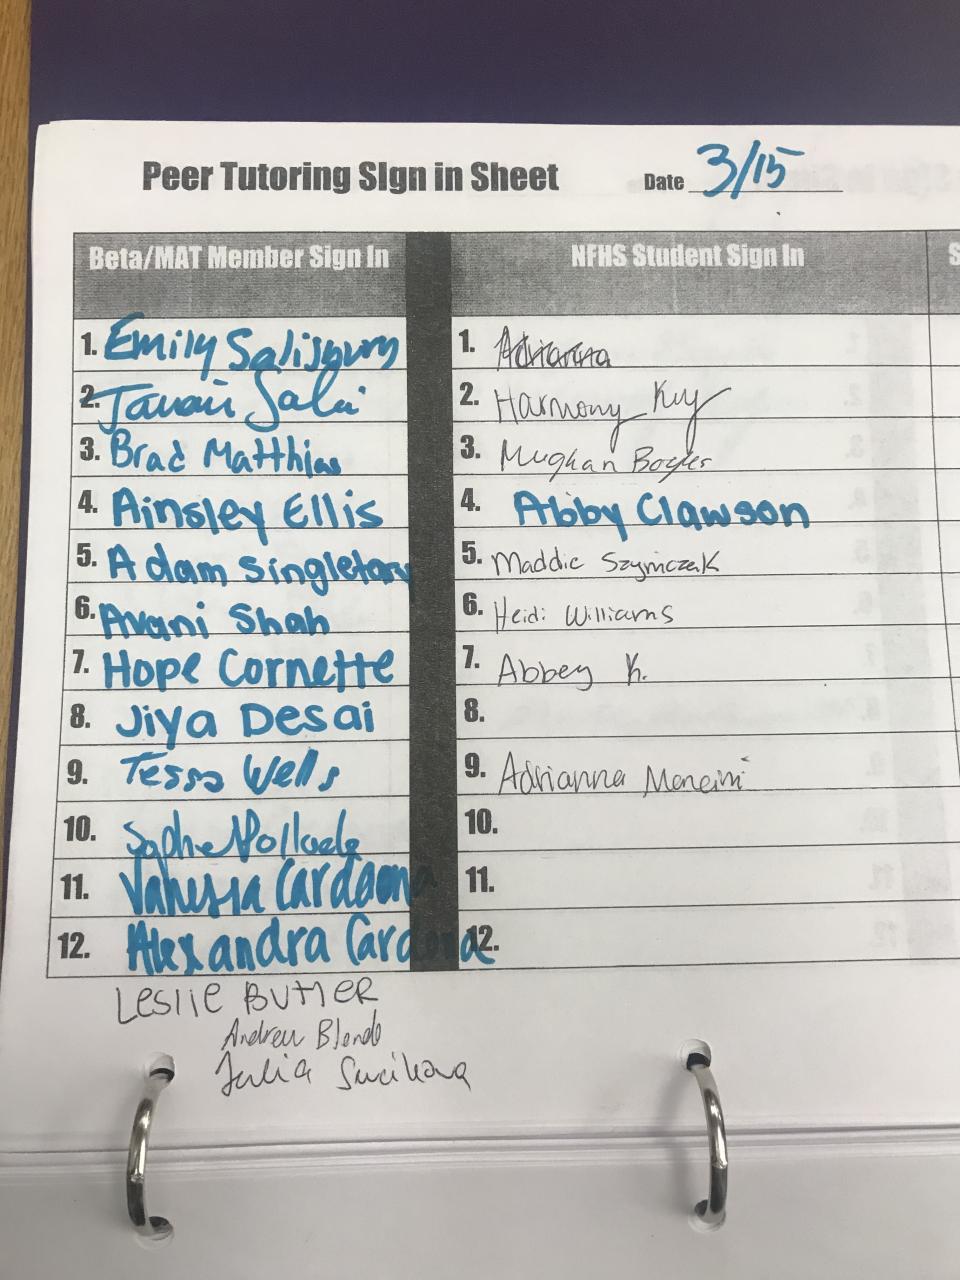 Peer Tutoring SIgn in Sheet Date 3/15
Beta/MAT Member Sign In NFHS Student Sign In S
1. Emily Salisbury 1. Adrianna
2. 2. Harmony Key
3. Brad Matthias 3. Meghan
4. Ainsley Ellis 4. Abby Clawson
5. Adam Singletary 5. Maddie Szymczak
6. Avani Shah 6. Heidi Williams
7. Hope Cornette 7. Abbey K.
8. Jiya Desai 8.
9. Tess Wells 9. Adrianna
10. 10.
11. Vanessa Cardona 11.
12. Alexandra Cardona 12.
Leslie Butler
Andrew
Julia